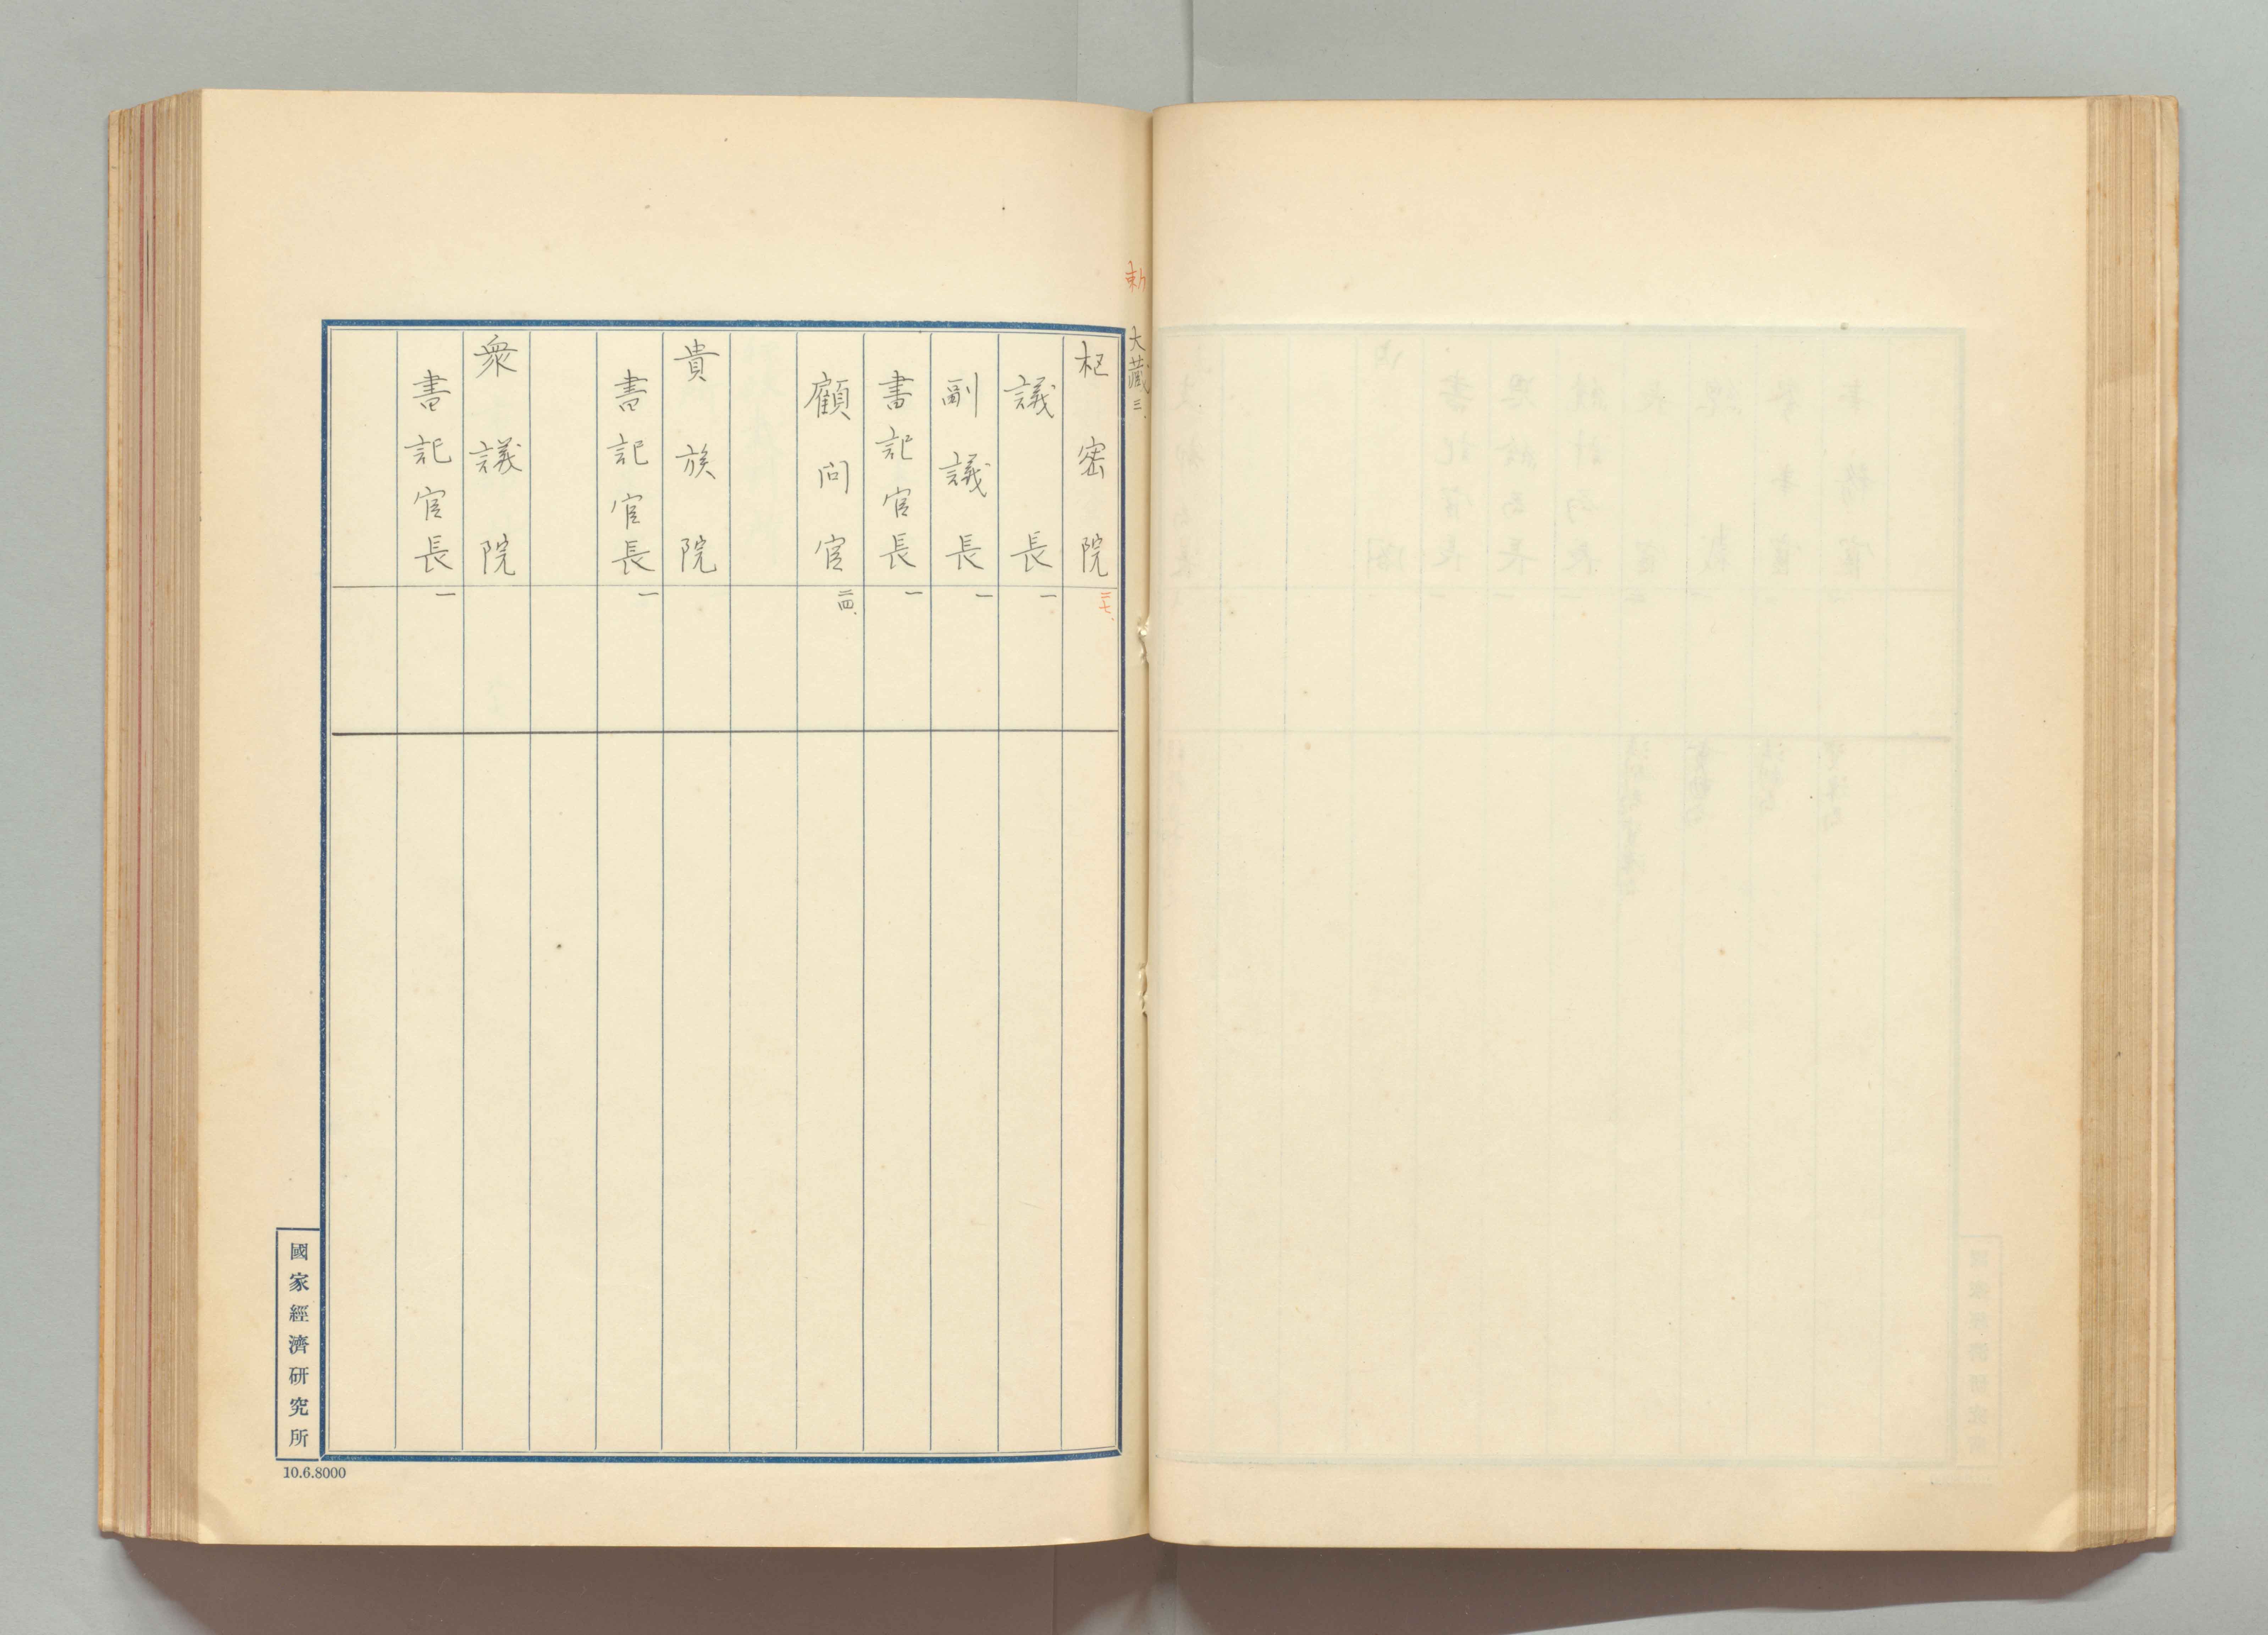 勅
大藏三.
枢密院 二七.
議長 一
副議長 一
書記官長 一
顧問官 二四.
貴族院
書記官長 一
衆議院
書記官長 一
國家經濟研究所
10.6.8000